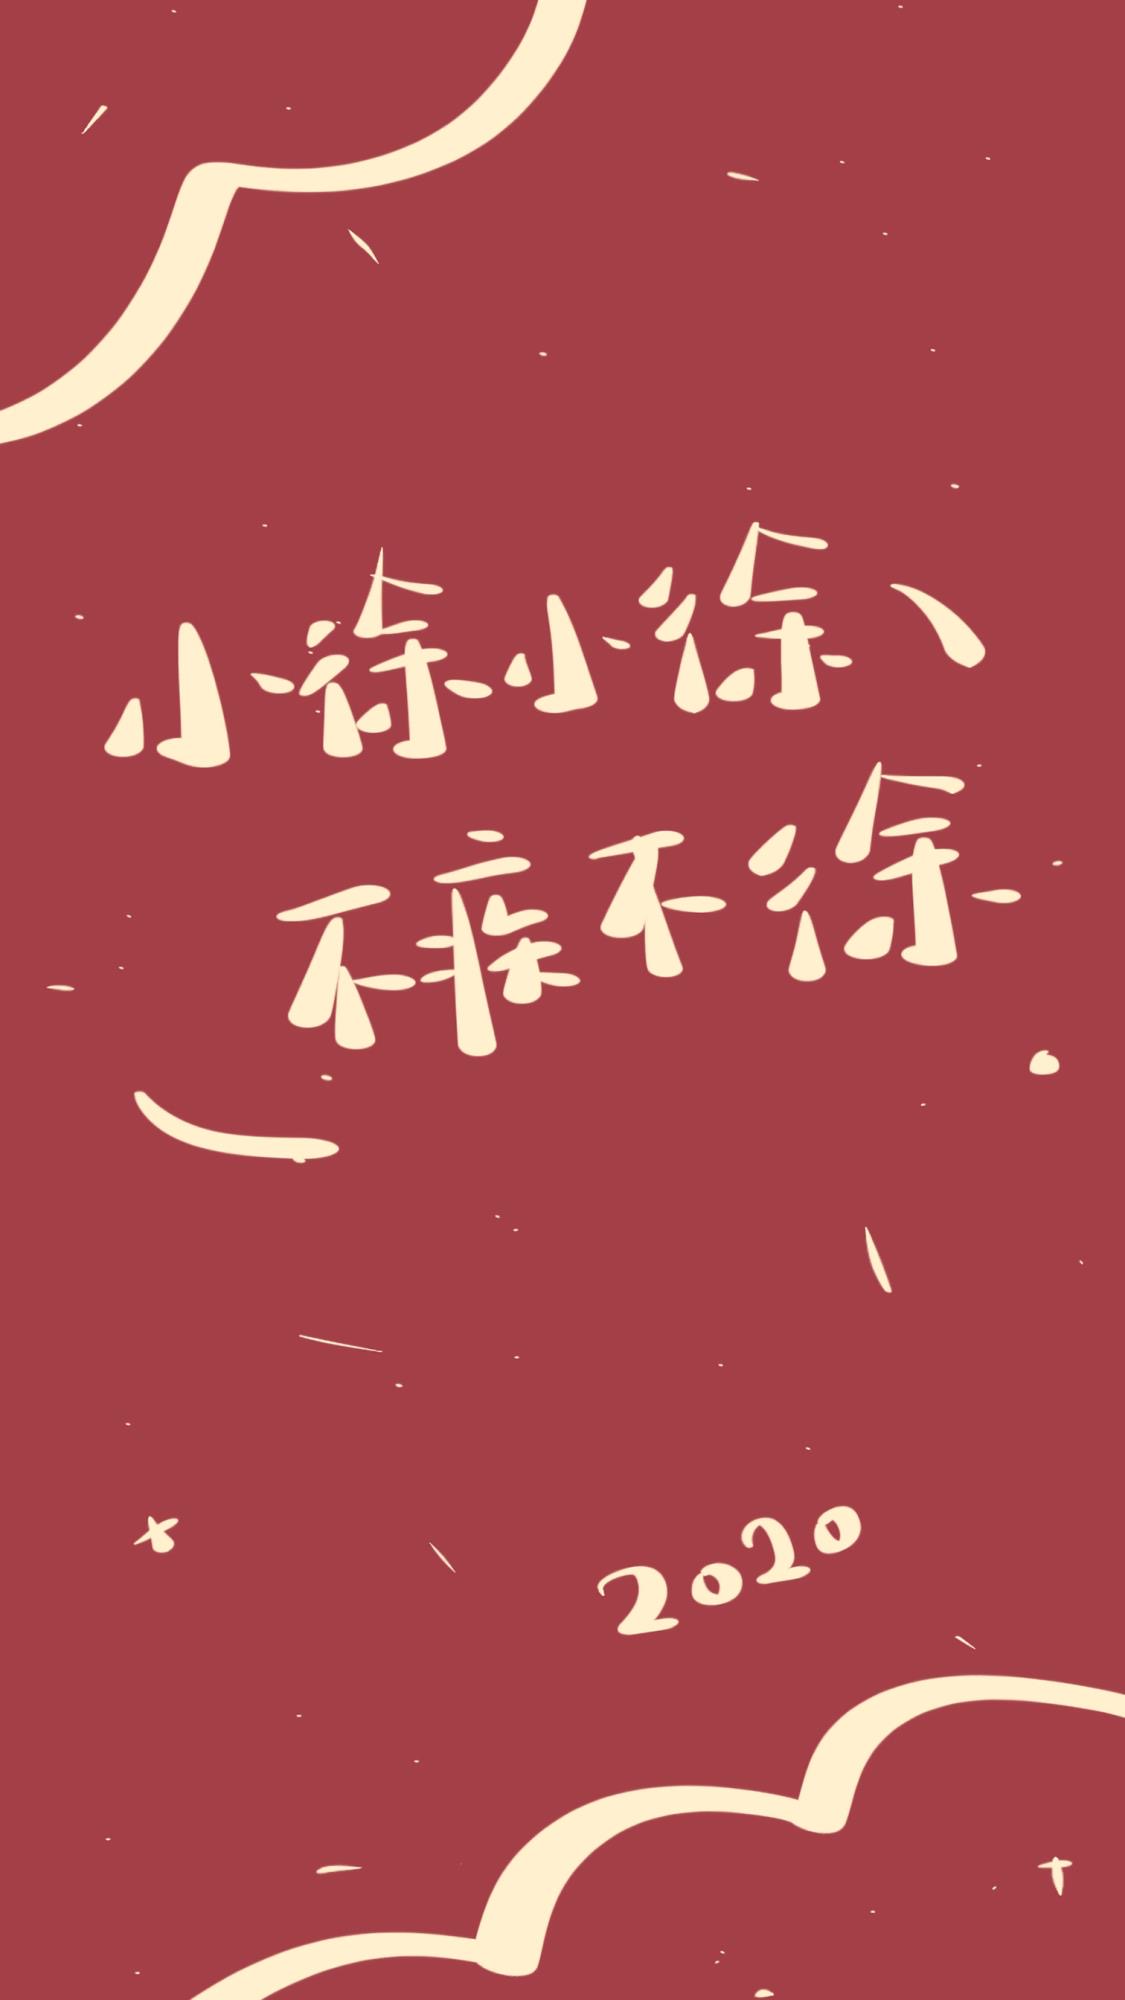 小徐小徐
不疾不徐
2020